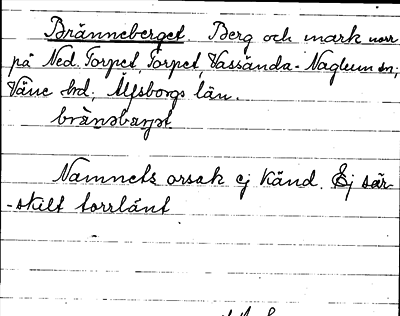 Bränneberget. Berg och mark norr
på Ned. Torpet, Torpet, Vassända-Naglum sn;
Väne hd; Älfsborgs län.
bränəbærjət
Namnets orsak ej känd. Ej sär-
-skilt torrlänt